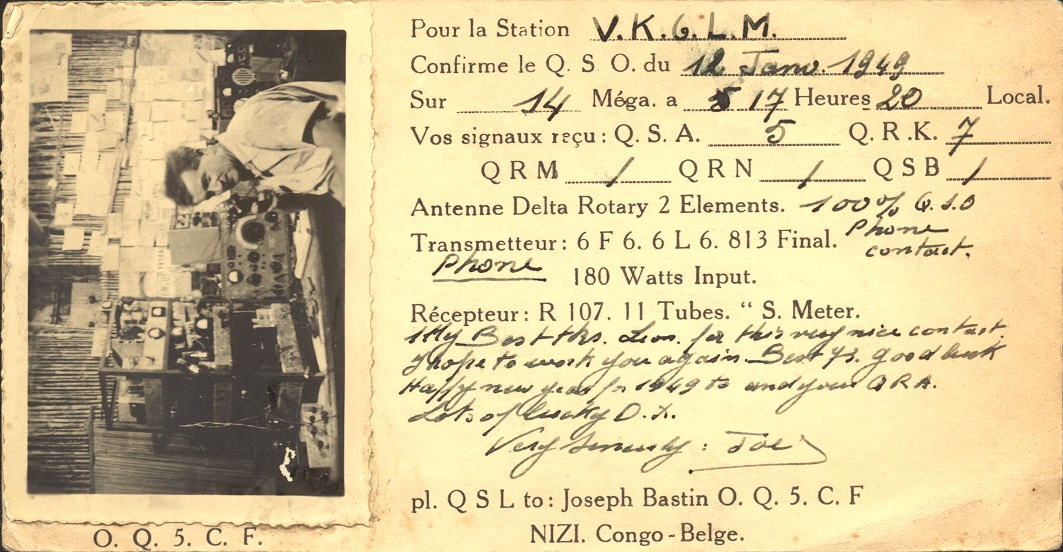 Pour la Station V.K.6.L.M.
Confirme le Q. S O. du 12 Janv 1949
Sur 14 Méga. a 17 Heures 20 Local.
Vos signaux reçu : Q. S. A. 5 Q. R. K. 7
QRM / QRN / QSB /
Antenne Delta Rotary 2 Elements. 100% Q.S.O
Transmetteur : 6 F 6. 6 L 6. 813 Final. Phone contact.
Phone 180 Watts Input.
Récepteur : R 107. 11 Tubes. “ S. Meter.
My Best tks. Leon. for this very nice contact
I hope to work you again. Best 73. good luck
Happy new year for 1949 to and your QRA.
Lots of lucky D.X.
Very : Joe
pl. Q S L to : Joseph Bastin O. Q. 5. C. F
NIZI. Congo - Belge.
O. Q. 5. C. F.